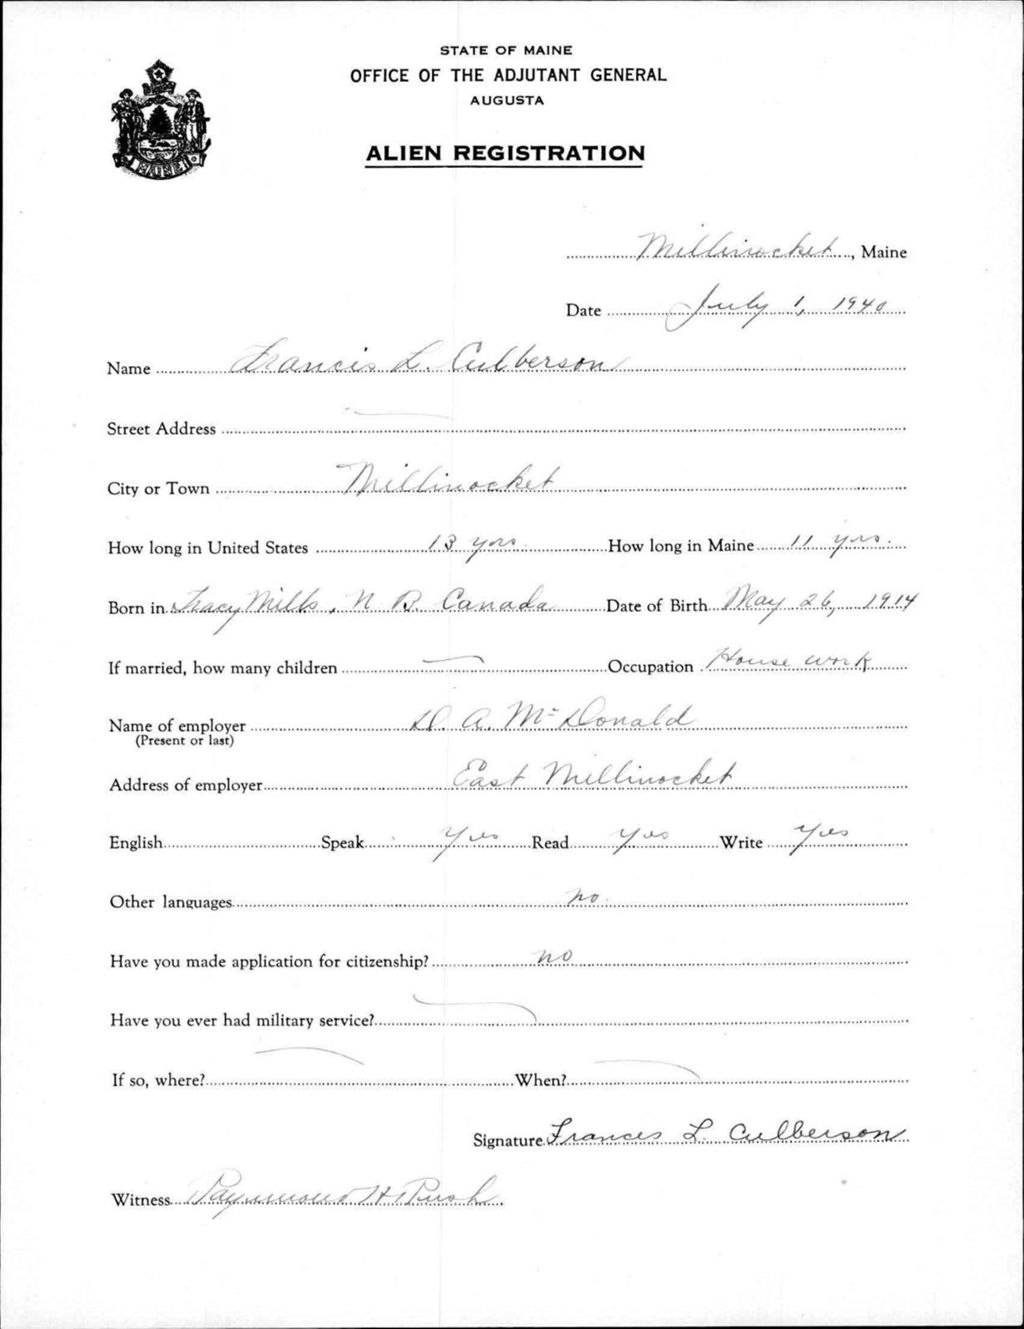 STATE OF MAINE
OFFICE OF THE ADJUTANT GENERAL
AUGUSTA
ALIEN REGISTRATION
MAINE
Millinocket, Maine
Date July 1, 1940
Name Francis L. Culberson
Street Address —
City or Town Millinocket
How long in United States 13 yrs How long in Maine 11 yrs.
Born in Tracy Mills, N B. Canada Date of Birth May 26, 1914
If married, how many children — Occupation House work
Name of employer D. A. McDonald
(Present or last)
Address of employer East Millinocket
English Speak Yes Read Yes Write Yes
Other languages no
Have you made application for citizenship? no
Have you ever had military service? —
If so, where? — When? —
Signature Frances L. Culberson
Witness Raymond H Rush